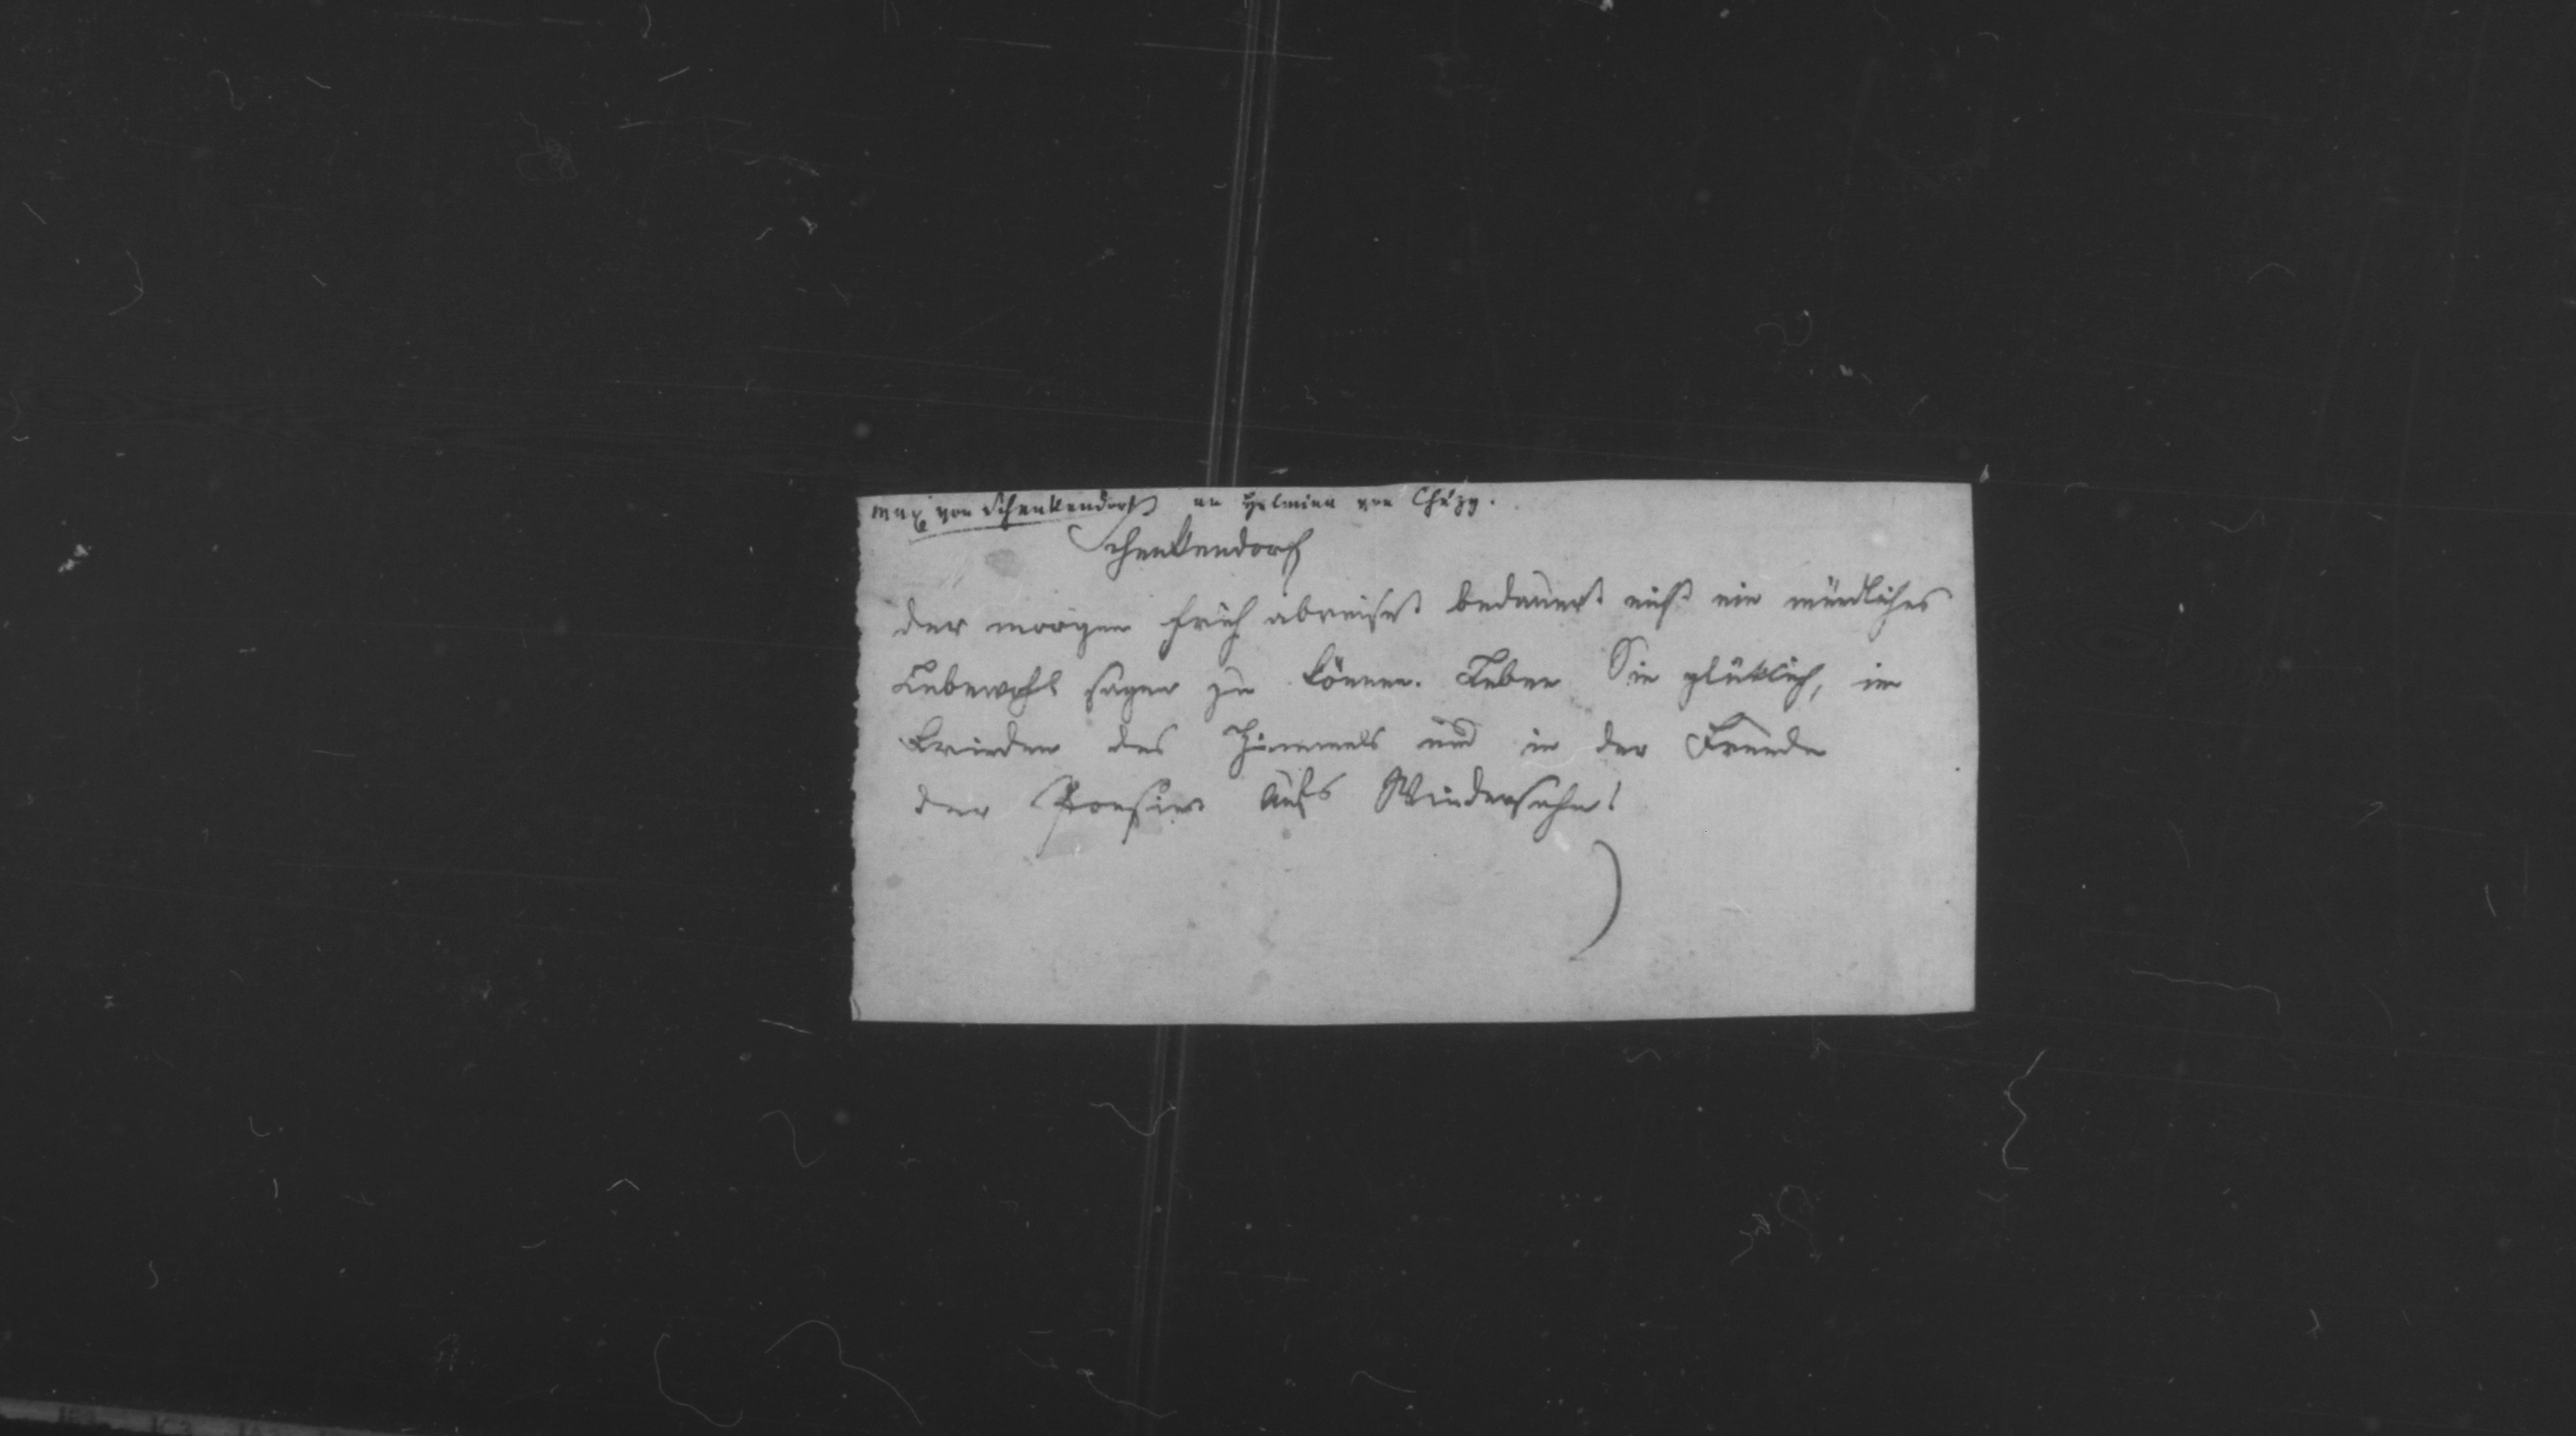 Max von Schenkendorf an Helmina von Chézy.
Schenkendorf
der morgen früh abreiset bedauert nicht ein mündliches
Lebewohl sagen zu können. Leben Sie glüklich, im
Frieden des Himmels und in der Freude
der Poesie. Aufs Wiedersehn!